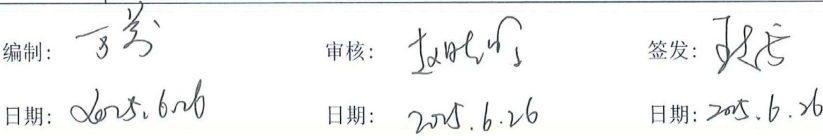 编制: 审核: 签发:
日期: 2025.6.26 日期: 2025.6.26 日期: 2025.6.26